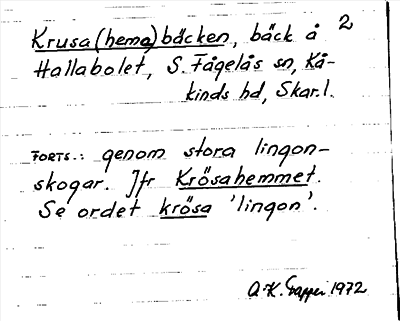 2
Krusa(hema)bäcken, bäck å
Hallabolet, S. Fågelås sn, Kå-
kinds hd, Skar.l.
FORTS.: genom stora lingon-
skogar. Jfr Krösahemmet.
Se ordet krösa 'lingon'.
A-K. 1972